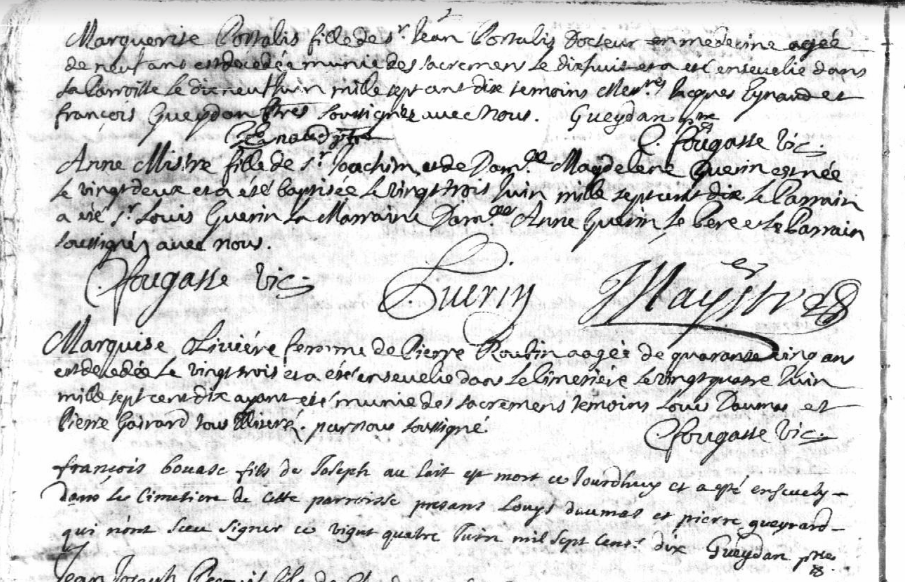 Marguerite Portalis fille de sr. Jean Portalis Docteur en medecine agée
de neuf ans est decedée munie des sacremens le dixhuit et a eté ensevelie dans
la Parroisse le dixneuf Juin mille sept cent dix temoins Mes.rs Jacques Eynaud et
françois Gueydan ptres soussignez avec nous. Gueydan ptre
Eynaud ptre
C. fougasse vic.
Anne Mistre fille de sr. Joachim et de Dam.lle Magdelene Guerin est née
le vingt deux et a eté baptisée le vingt trois Juin mille sept cent dix le Parrain
a eté sr. Louis Guerin la Marraine Dam.lle Anne Guerin le Pere et le Parrain
soussignéz avec nous.
Cfougasse vic. Guerin
Marquise Oliviére femme de Pierre Roubin aagée de quarante cinq ans
est decedée le vingt trois et a eté ensevelie dans le Cimetiére le vingt quatre Juin
mille sept cent dix ayant eté munie des sacremens temoins Louis Daumas et
Pierre tous par nous soussigné
Cfougasse vic.
françois bouasc fils de Joseph au lait est mort ce Jourdhuy et a esté ensevely
dans le Cimetiere de cette parroisse presans Louys daumas et pierre gueyrard
qui n'ont sceu signer ce vigut quatre Juin mil sept cens dix Gueydan ptre
Jean Joseph